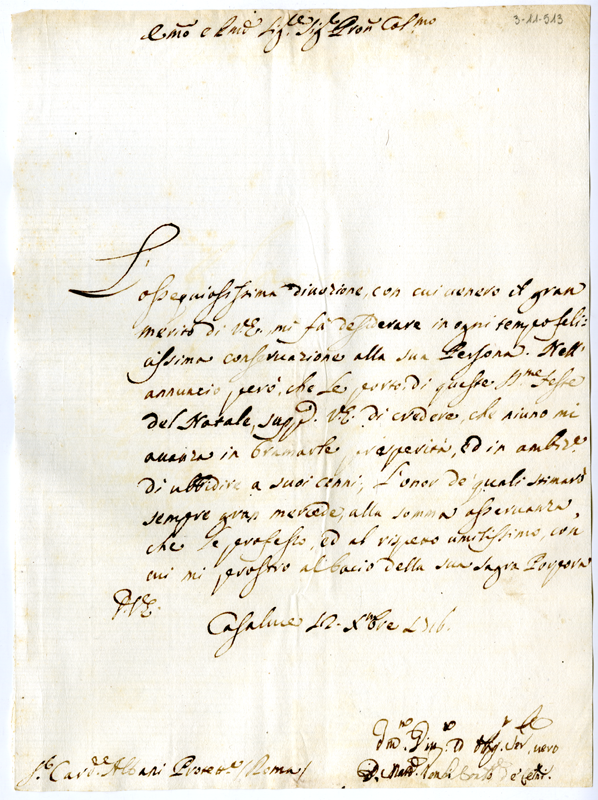 3-11-513
Emo e Rmo Sig.re Sig.re Pron Colmo
L'
ossequiosissima divozione, con cui venero il gran
merito di V.E., mi fà desiderare in ogni tempo feli=
cissima conservazione alla sua Persona. Nell'
annuncio però, che Le porto di queste S.me Feste
del Natale, supp.o V.E. di credere, che niuno mi
avanza in bramarle prosperità, ed in ambiz.e
di ubbidire a suoi cenni, L'onor de' quali stimarò
sempre gran mercede, alla somma osservanza,
che Le professo, ed al rispetto umilissimo, con
cui mi prostro al bacio della sua Sagra Porpora
D. V.E.
Casaluce 12. Xbre 1716.
vero
S.r Card.le Albani Protett.e (Roma)